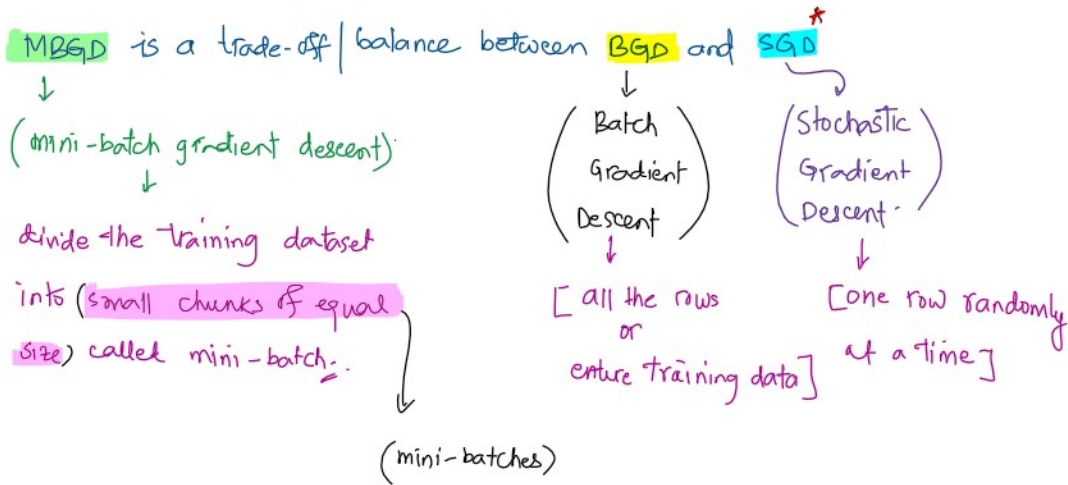 MBGD is a trade-off / balance between BGD and SGD*
(mini-batch gradient descent).
divide the training dataset
into (small chunks of equal
size) called mini-batch.
(mini-batches)
(Batch
Gradient
Descent)
[all the rows
or
entire training data]
(Stochastic
Gradient
Descent.)
[one row randomly
at a time]